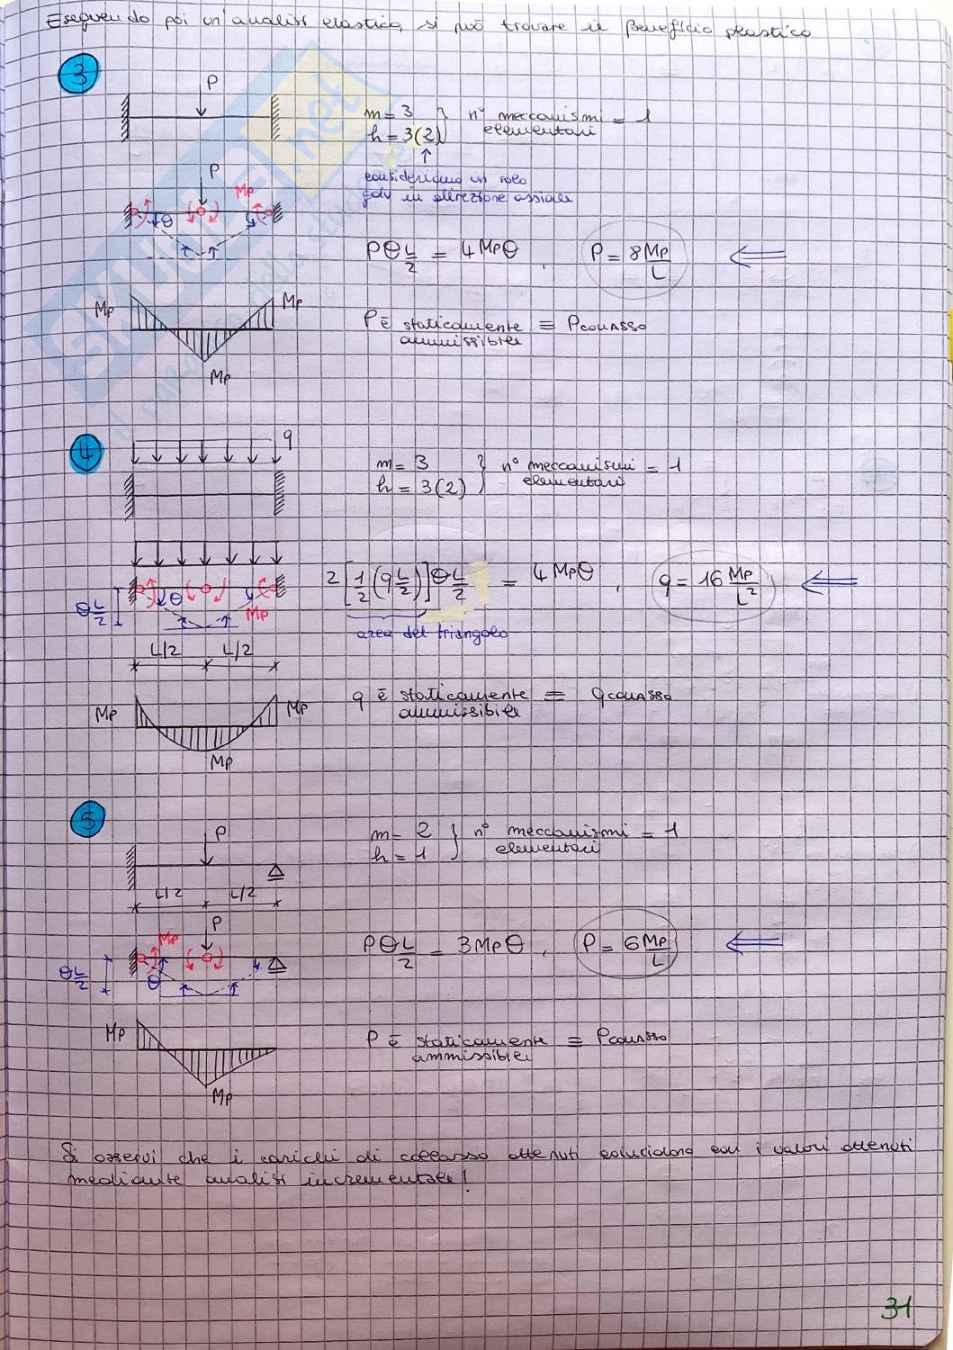 Eseguendo poi un'analisi elastica, si può trovare il beneficio plastico
3
P
m = 3
h = 3(2) } n° meccanismi elementari = 1
↑
consideriamo un solo
gdv in direzione assiale
P
Mp
θ
PθL/2 = 4Mpθ , P = 8Mp/L ⇐
Mp Mp
Mp
P è staticamente ammissibile ≡ Pcollasso
4
q
m = 3
h = 3(2) } n° meccanismi elementari = 1
θL/2
θ
Mp
2[1/2(qL/2)]θL/2 = 4Mpθ , q = 16Mp/L² ⇐
area del triangolo
L/2 L/2
Mp Mp
Mp
q è staticamente ammissibile ≡ qcollasso
5
P
m = 2
h = 1 } n° meccanismi elementari = 1
L/2 L/2
P
Mp
θL/2
θ
PθL/2 = 3Mpθ , P = 6Mp/L ⇐
Mp
Mp
P è staticamente ammissibile ≡ Pcollasso
Si osservi che i carichi di collasso ottenuti coincidono con i valori ottenuti
mediante analisi incrementale!
31